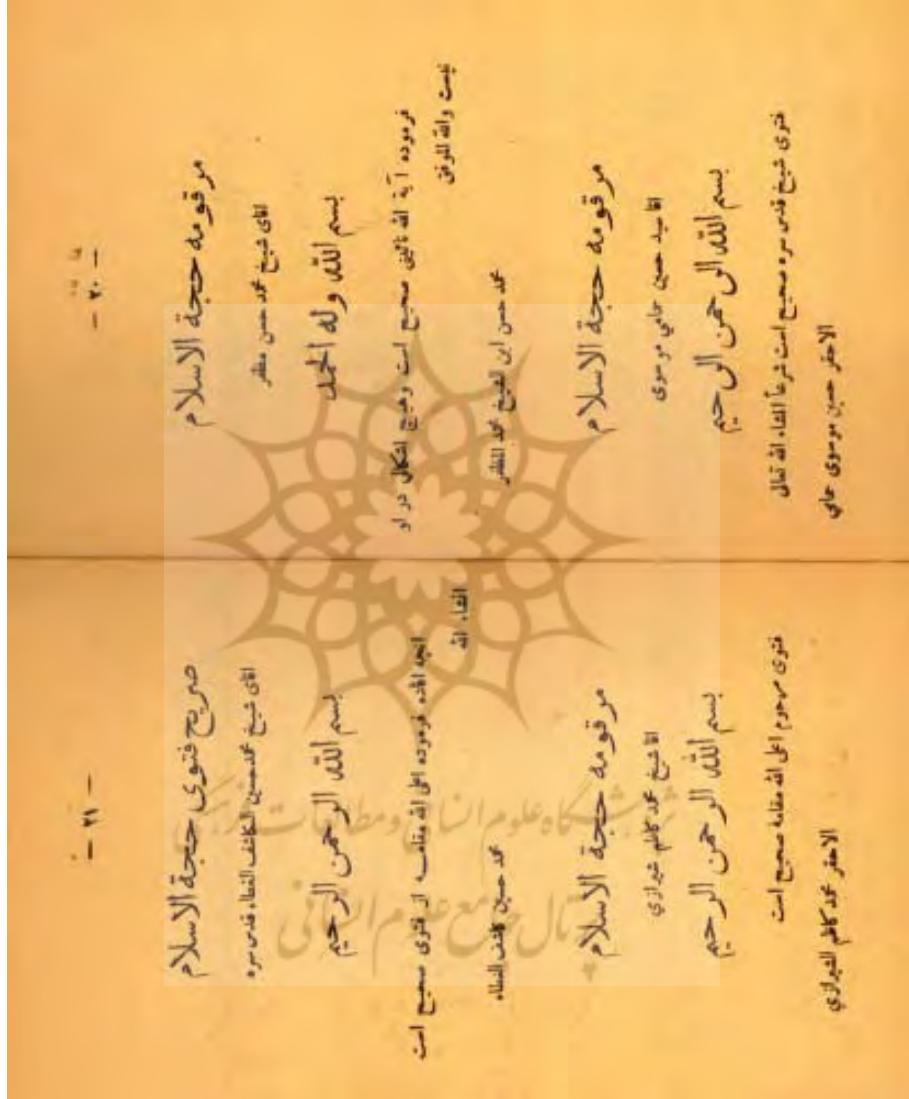 — ٢٠ —
مرقومه حجة الاسلام
اقای شیخ محمد حسن مظفر
بسم الله وله الحمد
فرموده آية الله نائینی صحیح است وهیچ اشکالی در او
نیست والله الموفق
محمد حسن ابن الشیخ محمد المظفر
مرقومه حجة الاسلام
اقا سید حسین حمامی موسوی
بسم الله الرحمن الرحیم
فتوی شیخ قدس سره صحیح است شرعاً انشاء الله تعالی
الاحقر حسین موسوی حمامی
— ٢١ —
صریح فتوی حجة الاسلام
اقای شیخ محمد حسین الکاشف الغطاء قدس سره
بسم الله الرحمن الرحیم
انچه افاده فرموده اعلی الله مقامه از فتوی صحیح است
انشاء الله
محمد حسین کاشف الغطاء
مرقومه حجة الاسلام
اقا شیخ محمد کاظم شیرازی
بسم الله الرحمن الرحیم
فتوی مرحوم اعلی الله مقامه صحیح است
الاحقر محمد کاظم الشیرازي
پژوهشگاه علوم انسانی و مطالعات فرهنگی
پرتال جامع علوم انسانی